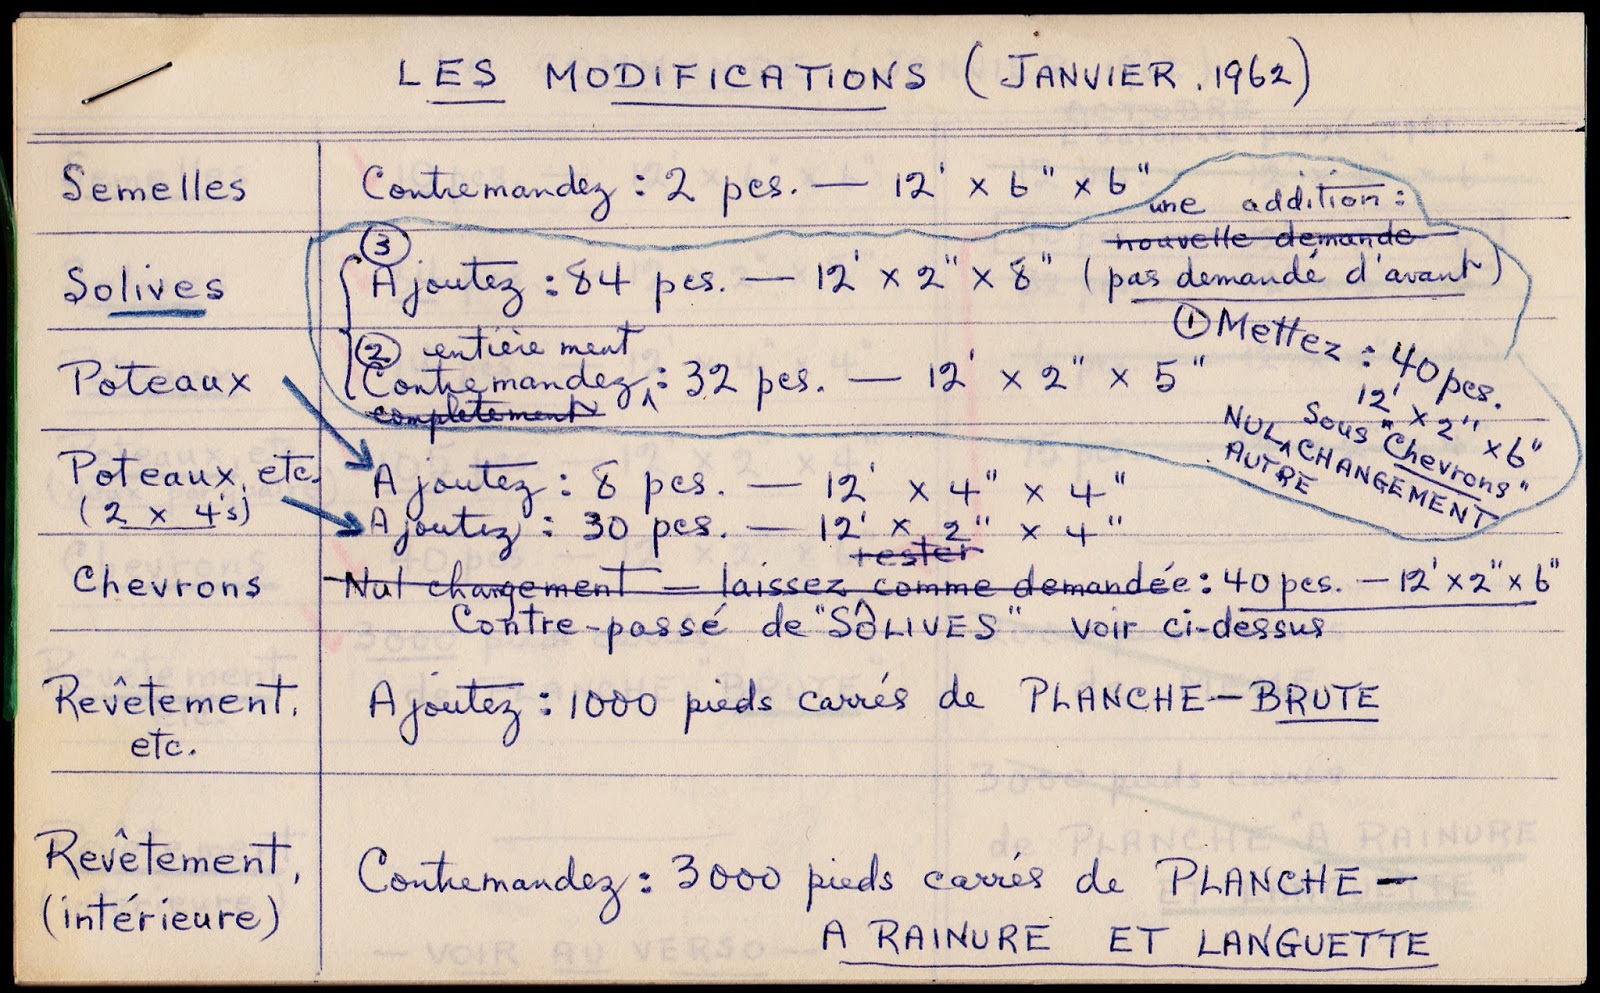 LES MODIFICATIONS (JANVIER, 1962)
Semelles
Contremandez : 2 pcs. — 12' x 6" x 6"
une addition :
nouvelle demande
Solives
③
Ajoutez : 84 pcs. — 12' x 2" x 8" (pas demandé d'avant)
① Mettez : 40 pcs.
12' x 2" x 6"
Sous "Chevrons"
NUL AUTRE CHANGEMENT
Poteaux
② entièrement
Contremandez : 32 pcs. — 12' x 2" x 5"
completement
Poteaux, etc.
(2 x 4's)
Ajoutez : 8 pcs. — 12' x 4" x 4"
Ajoutez : 30 pcs. — 12' x 2" x 4"
rester
Chevrons
Nul changement — laissez comme demandée : 40 pcs. — 12' x 2" x 6"
Contre-passé de "SÔLIVES" voir ci-dessus
Revêtement,
etc.
Ajoutez : 1000 pieds carrés de PLANCHE-BRUTE
Revêtement,
(intérieure)
Contremandez : 3000 pieds carrés de PLANCHE —
A RAINURE ET LANGUETTE